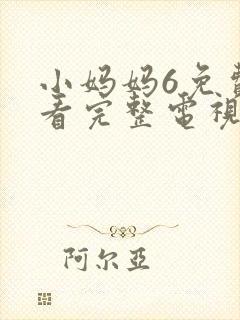 小妈妈6免費
看完整電視
阿尔亞